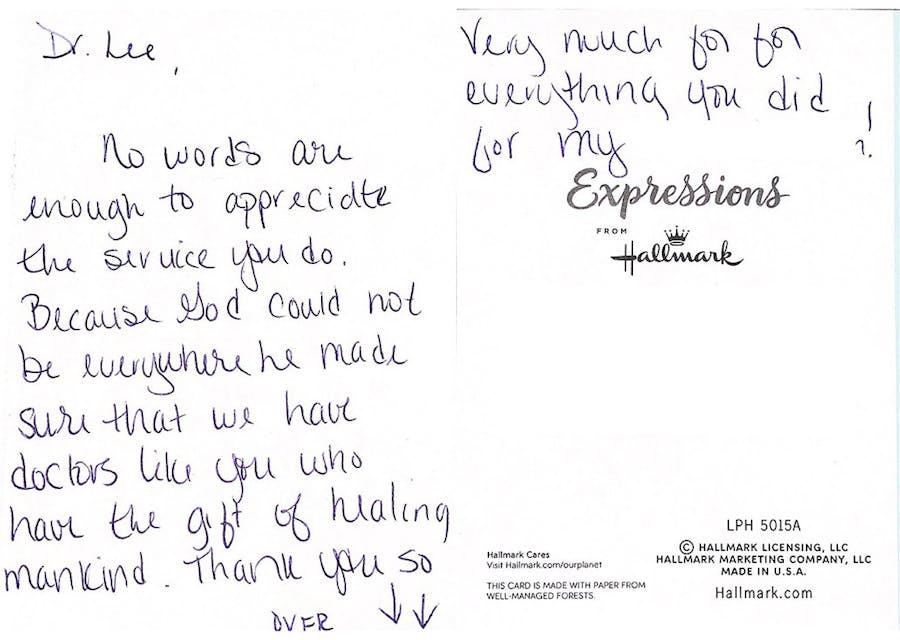 Dr. Lee,
No words are
enough to appreciate
the service you do.
Because God could not
be everywhere he made
sure that we have
doctors like you who
have the gift of healing
mankind. Thank you so
OVER ↓↓
Very much for for
everything you did
for my
!
?.
Expressions
FROM
Hallmark
LPH 5015A
© HALLMARK LICENSING, LLC
HALLMARK MARKETING COMPANY, LLC
MADE IN U.S.A.
Hallmark.com
Hallmark Cares
Visit Hallmark.com/ourplanet
THIS CARD IS MADE WITH PAPER FROM
WELL-MANAGED FORESTS.